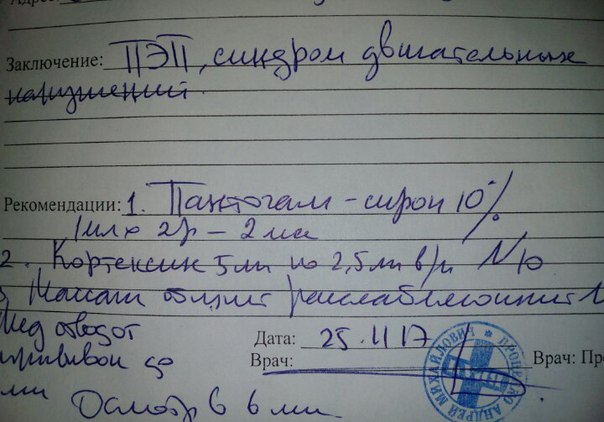 Адрес:
Заключение: ПЭП, синдром двигательных
нарушений.
Рекомендации: 1. Пантогам - сироп 10%
1мл х 2р - 2 мес
2. Кортексин 5мг по 2,5мл в/м N10
Массаж общий расслабляющий N
Мед отвод от
прививок до
Дата: 25.11.17
Врач:
Врач: Пр
Осмотр в 6 мес
АНДРЕЙ МИХАЙЛОВИЧ